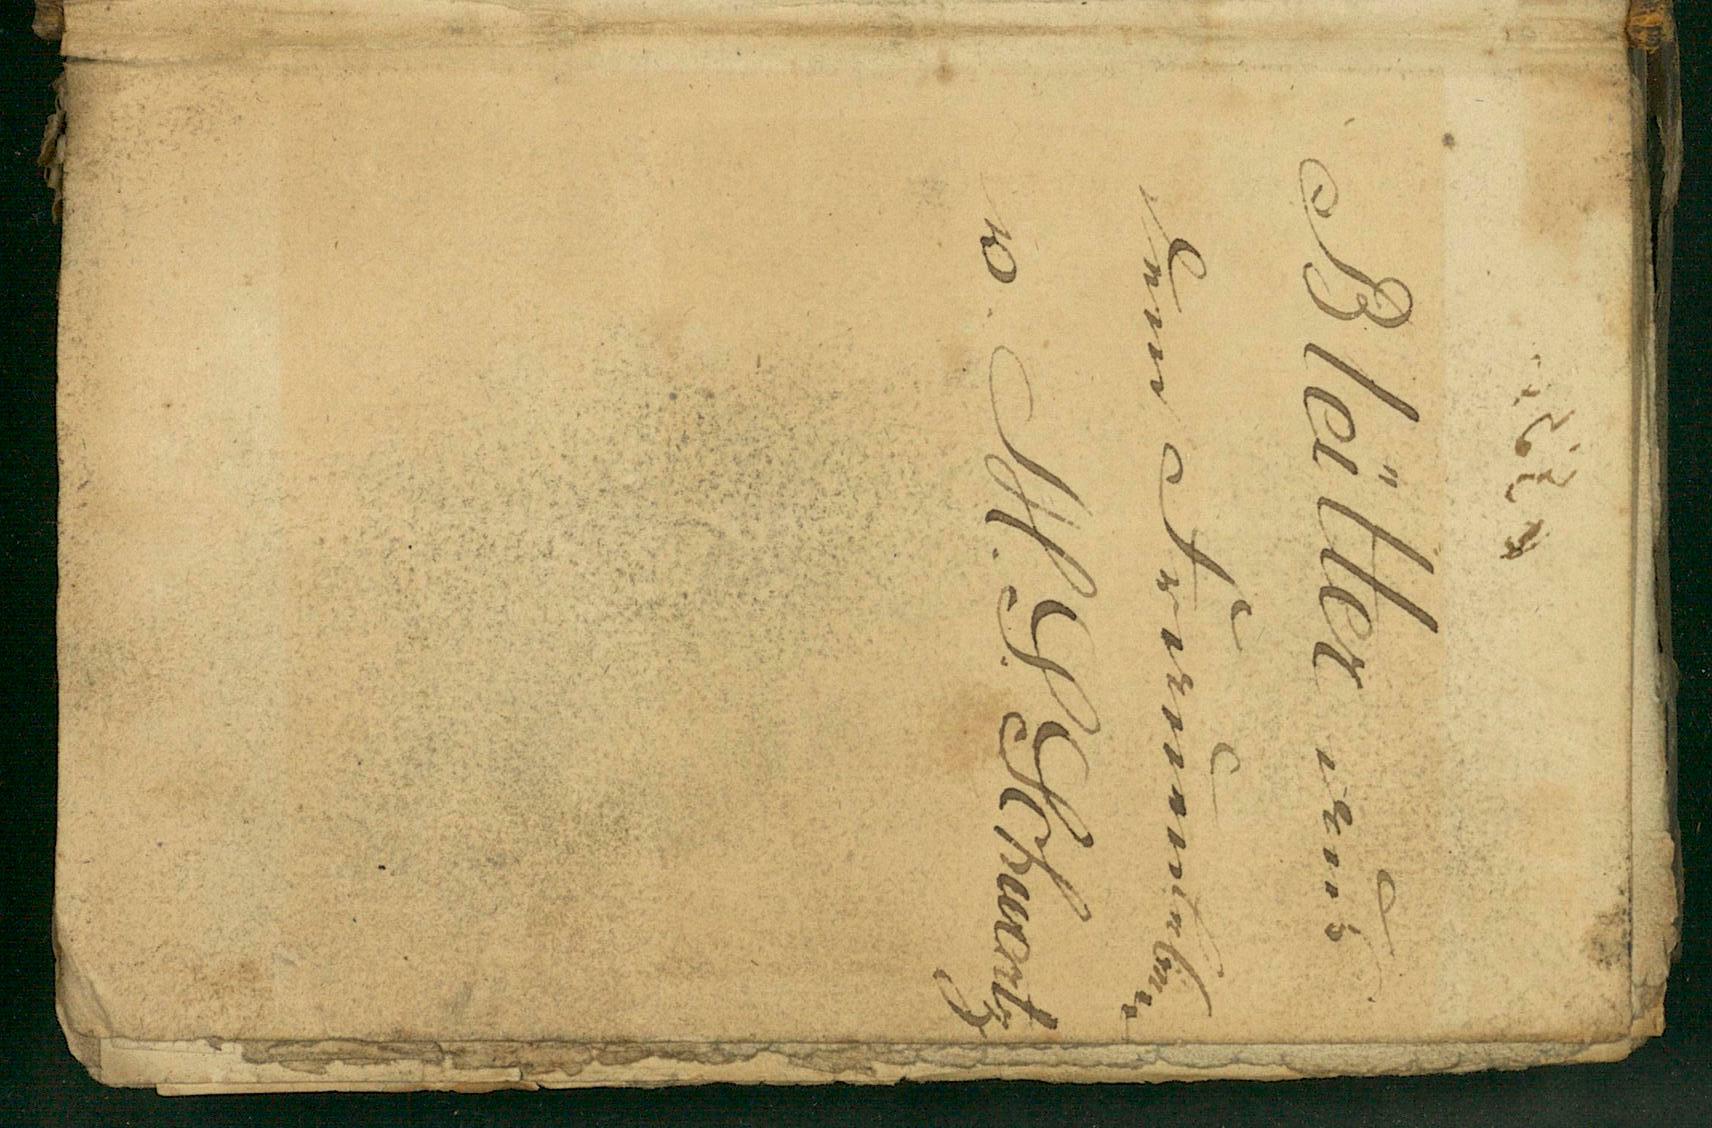 Blätter aus
dem Frauenleben
v. M. S. Schwartz